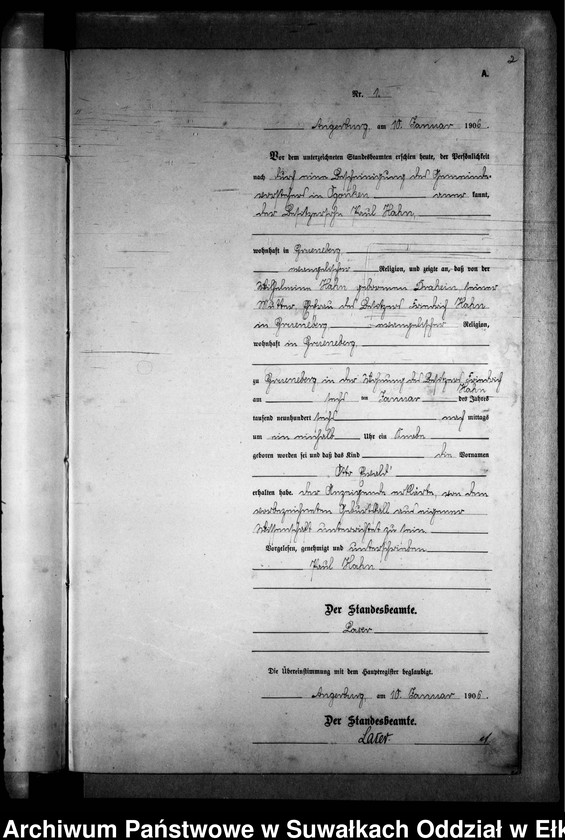 2
A.
Nr. 1.
Angerburg, am 10. Januar 1906.
Vor dem unterzeichneten Standesbeamten erschien heute, der Persönlichkeit
nach durch eine Bescheinigung des Gemeinde-
vorstehers in anerkannt,
der Besitzersohn Paul Hahn,
wohnhaft in Grueneberg
evangelischer Religion, und zeigte an, daß von der
Wilhelmine Hahn geborenen Drahein seiner
Mutter, Ehefrau des Besitzers Friedrich Hahn
in Grueneberg evangelischer Religion,
wohnhaft in Grueneberg.
zu Grueneberg in der Wohnung des Besitzers Friedrich
Hahn
am sechs ten Januar des Jahres
tausend neunhundert sechs nachmittags
um ein einhalb Uhr ein Knabe
geboren worden sei und daß das Kind den Vornamen
Otto Ewald
erhalten habe. Der Anzeigende erklärte, von dem
vorbezeichneten Geburtsfall aus eigener
Wissenschaft unterrichtet zu sein.
Vorgelesen, genehmigt und unterschrieben
Paul Hahn
Der Standesbeamte.
Die Übereinstimmung mit dem Hauptregister beglaubigt.
Angerburg, am 10. Januar 1906.
Der Standesbeamte.
Archiwum Państwowe w Suwałkach Oddział w Ełk